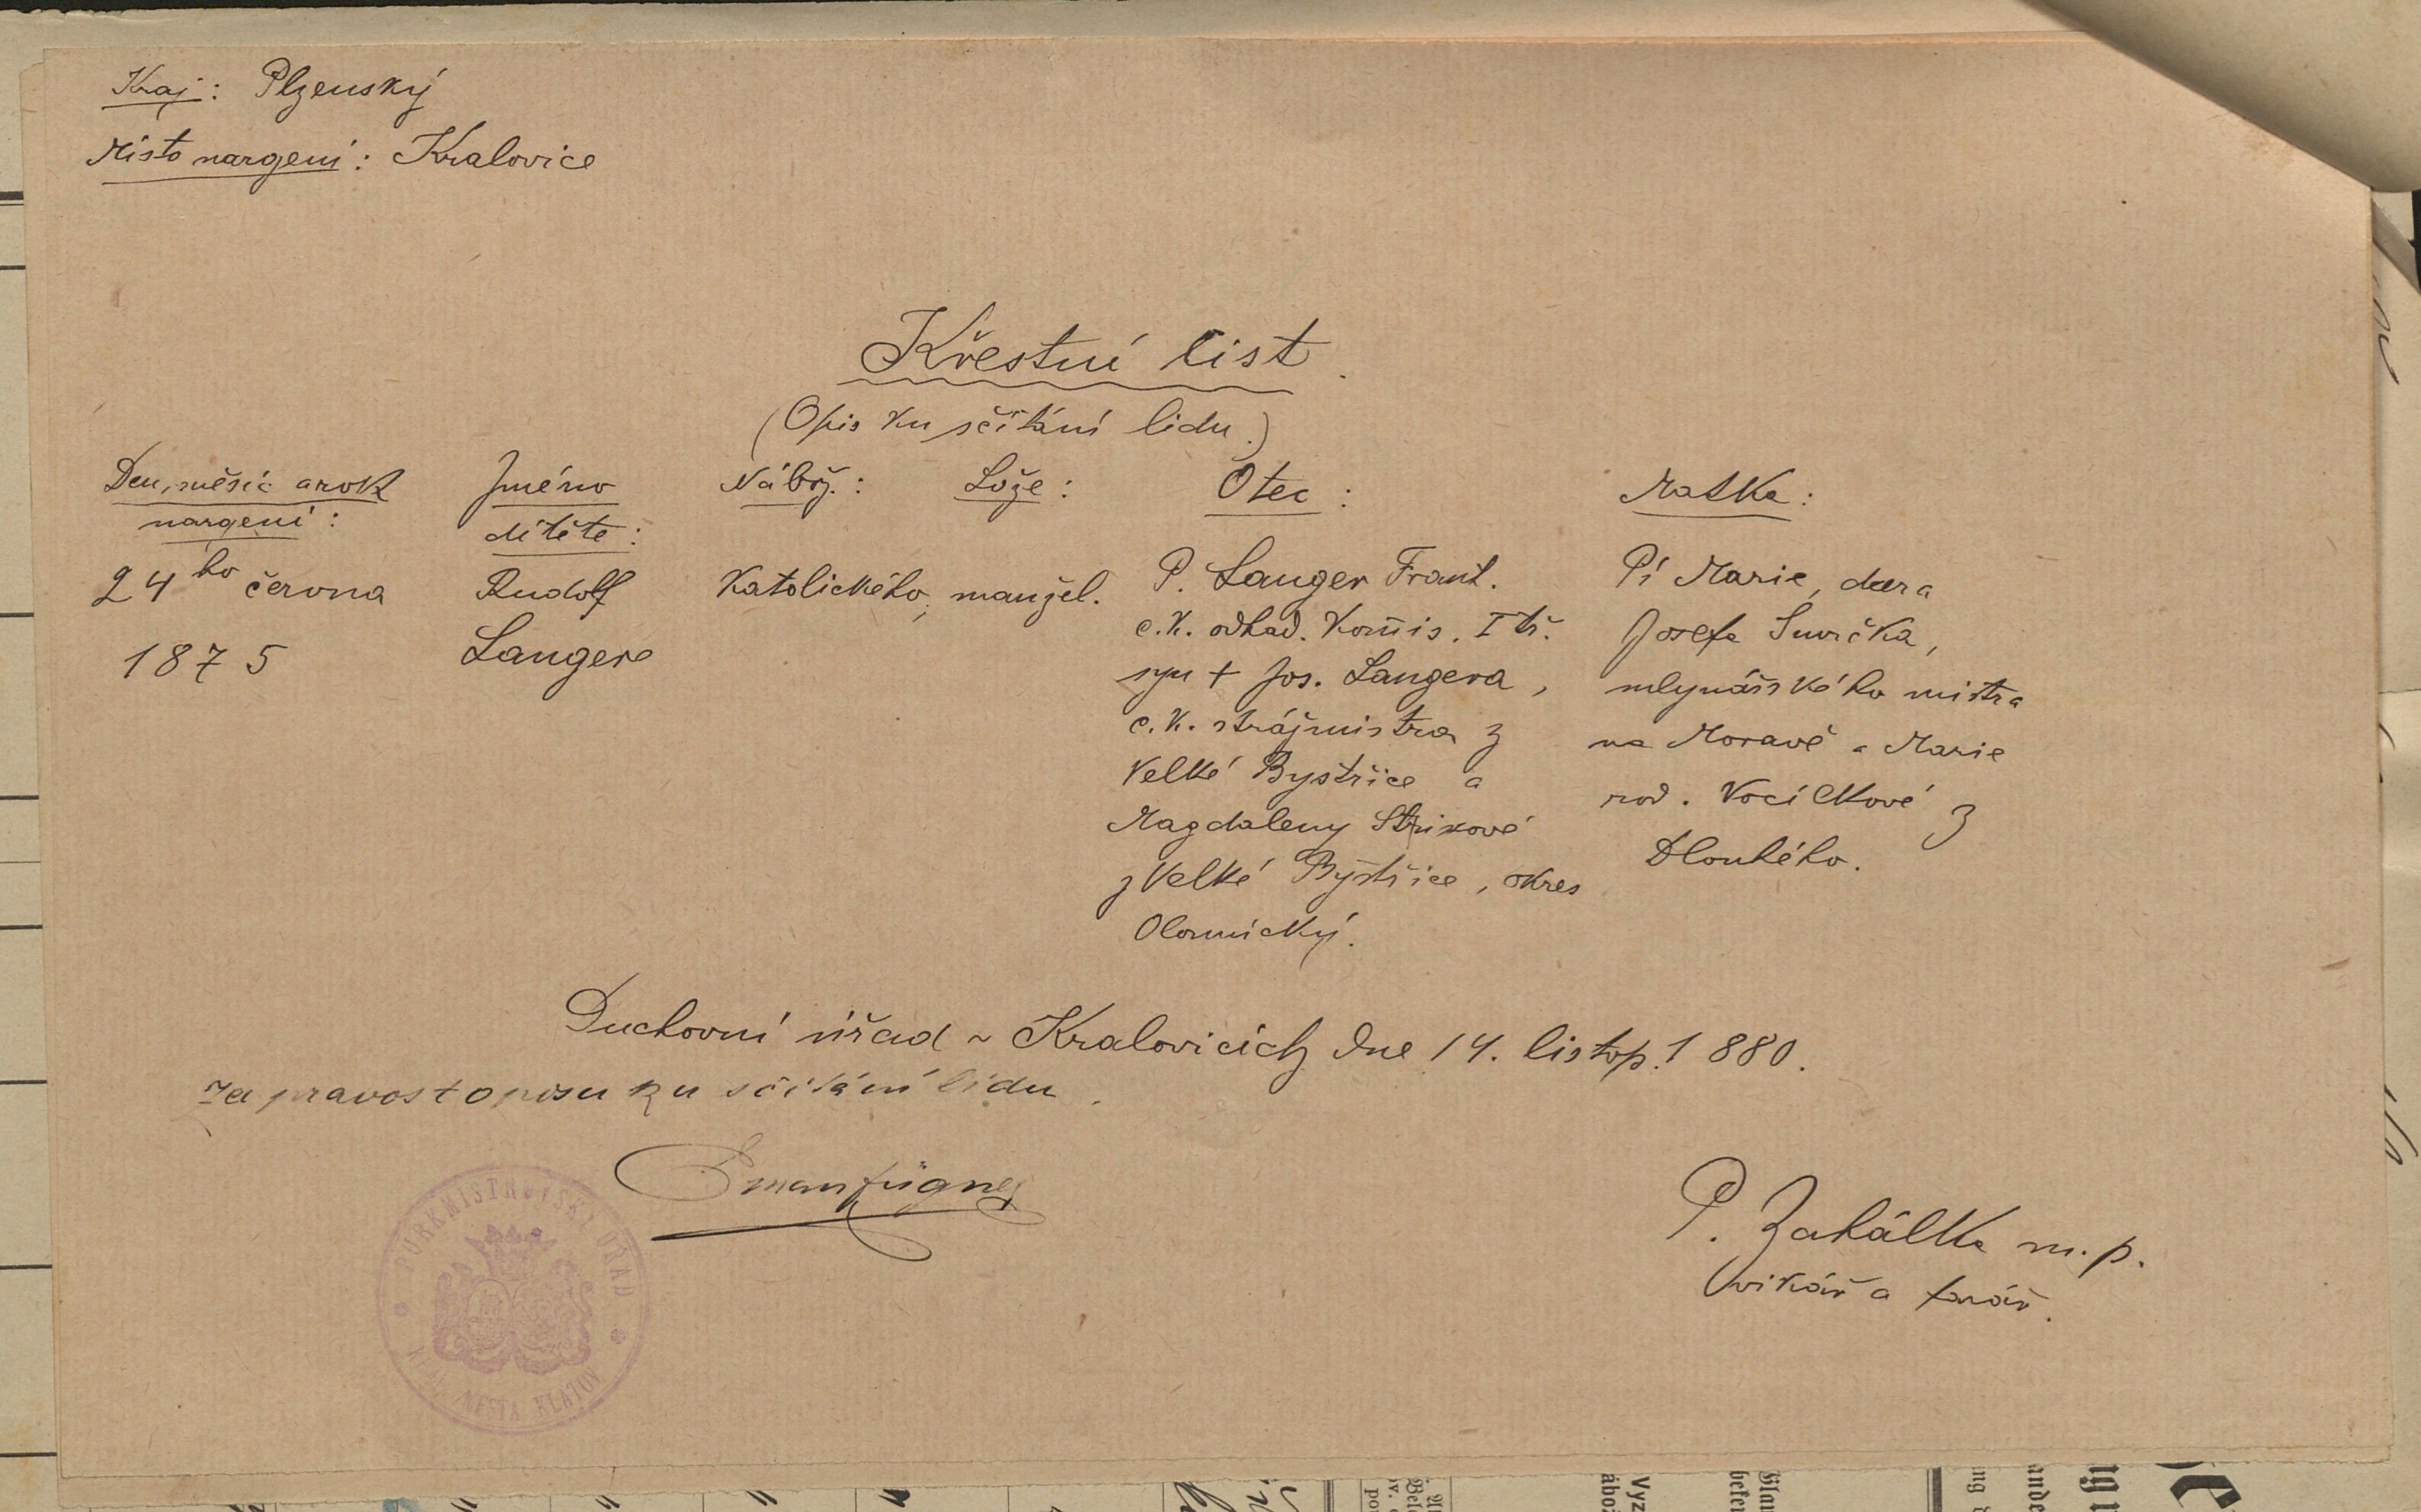 Kraj: Plzenský
Místo narození: Kralovice
Křestní list.
(Opis ku sčítání lidu.)
Den, měsíc a rok
narození:
24ho června
1875
Jméno
dítěte:
Rudolf
Langer
Nábož.:
Katolického,
Lože:
manžel.
Otec:
P. Langer Frant.
c. k. odhad. komis. I tř.
syn + Jos. Langera,
c. k. strážmistra z
Velké Bystřice a
Magdaleny
z Velké Bystřice, okres
Olomucký.
Matka:
Pí Marie, dcera
Josefa Smrčka,
mlynářského mistra
na Moravě a Marie
rod. Vocílkové z
Dlouhého.
Duchovní úřad v Kralovicích dne 14. listop. 1880.
Za pravost opisu ku sčítání lidu.
P. Zahálka m. p.
vikář a farář.
PURKMISTROVSKÝ ÚŘAD
MĚSTA KLATOV